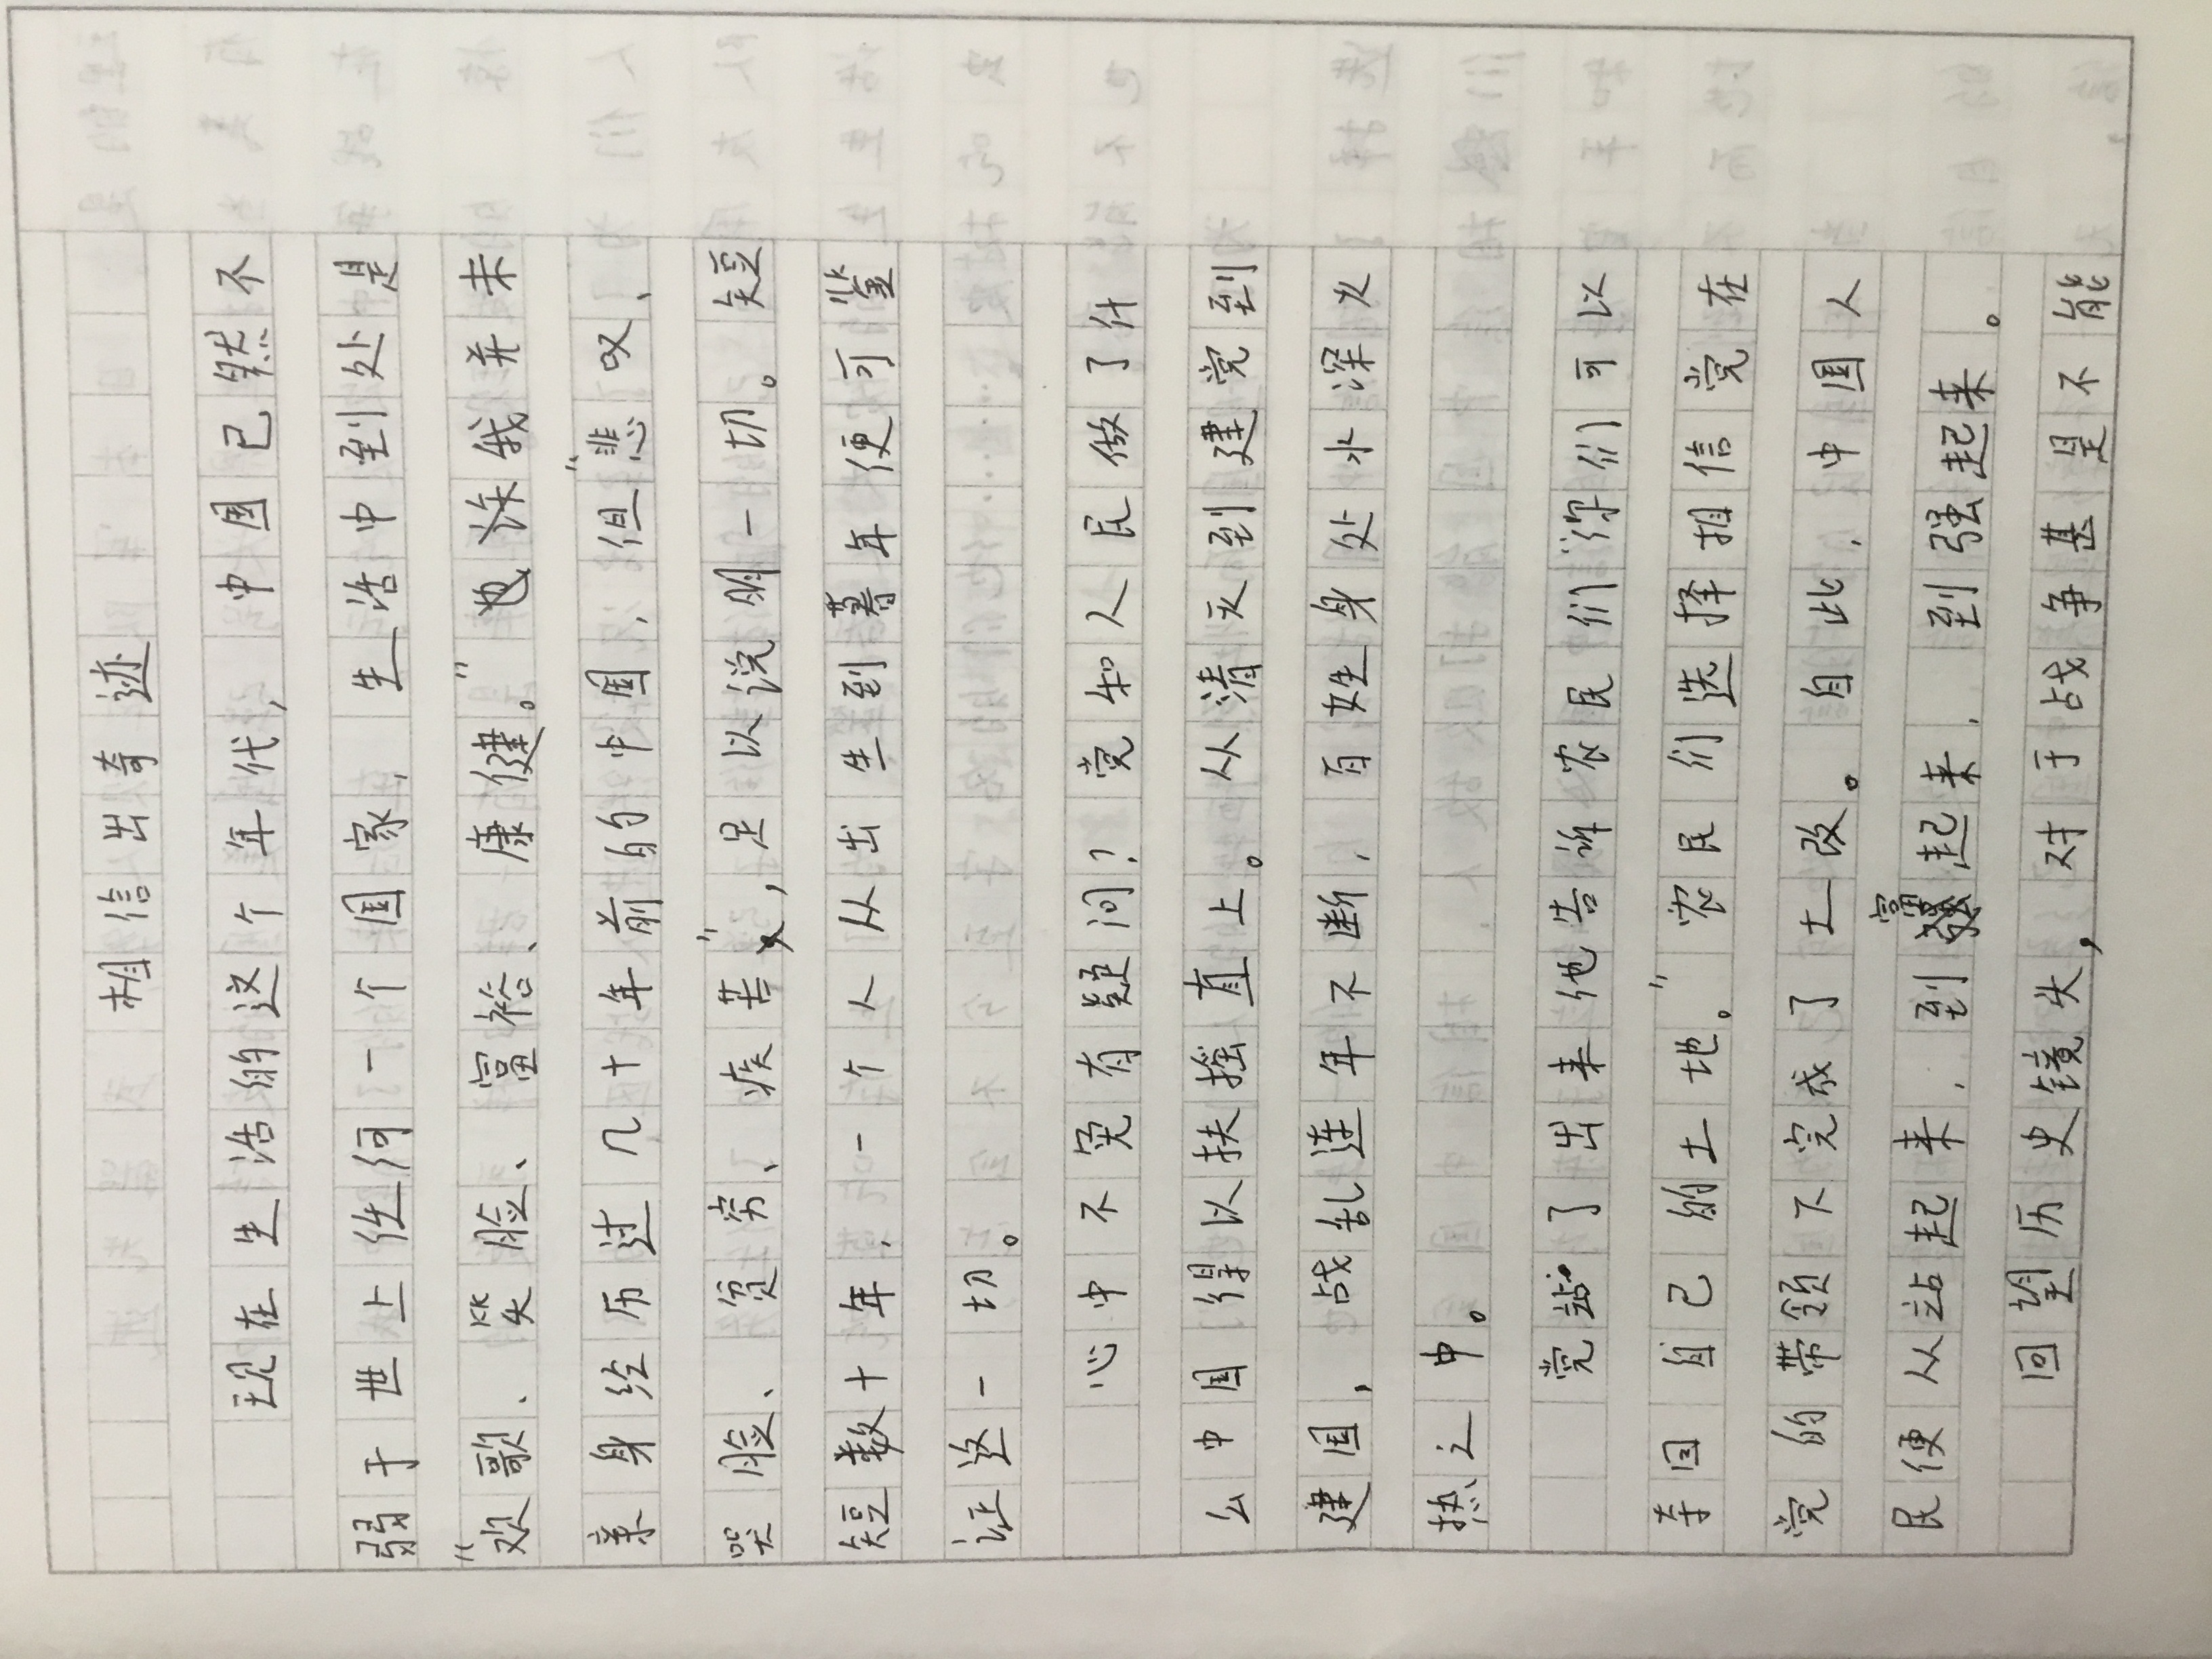 相信出奇迹
现在生活的这个年代，中国已然不
弱于世上任何一个国家，生活中到处是
“欢歌、笑脸、富裕、康健。”也许我并未
亲身经历过几十年前的中国，但“悲叹、
哭脸、贫穷、疾苦”，足以说明一切。短
短数十年，一个人从出生到暮年便可鉴
证这一切。
心中不免有疑问？党和人民做了什
么中国得以扶摇直上。从清灭到建党到
建国，战乱连年不断，百姓身处水深火
热之中。
党站了出来他告诉农民们“你们可以
夺回自己的土地。”农民们选择相信党在
党的带领下完成了土改。自此，中国人
民便从站起来，到富起来，到强起来。
回望历史镜头，对于战争甚是不能